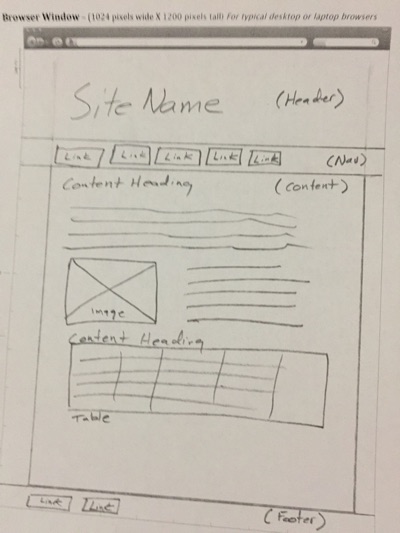 Browser Window - (1024 pixels wide X 1200 pixels tall) For typical desktop or laptop browsers
Site Name (Header)
Link Link Link Link Link (Nav)
Content Heading (Content)
Image
Content Heading
Table
Link Link (Footer)